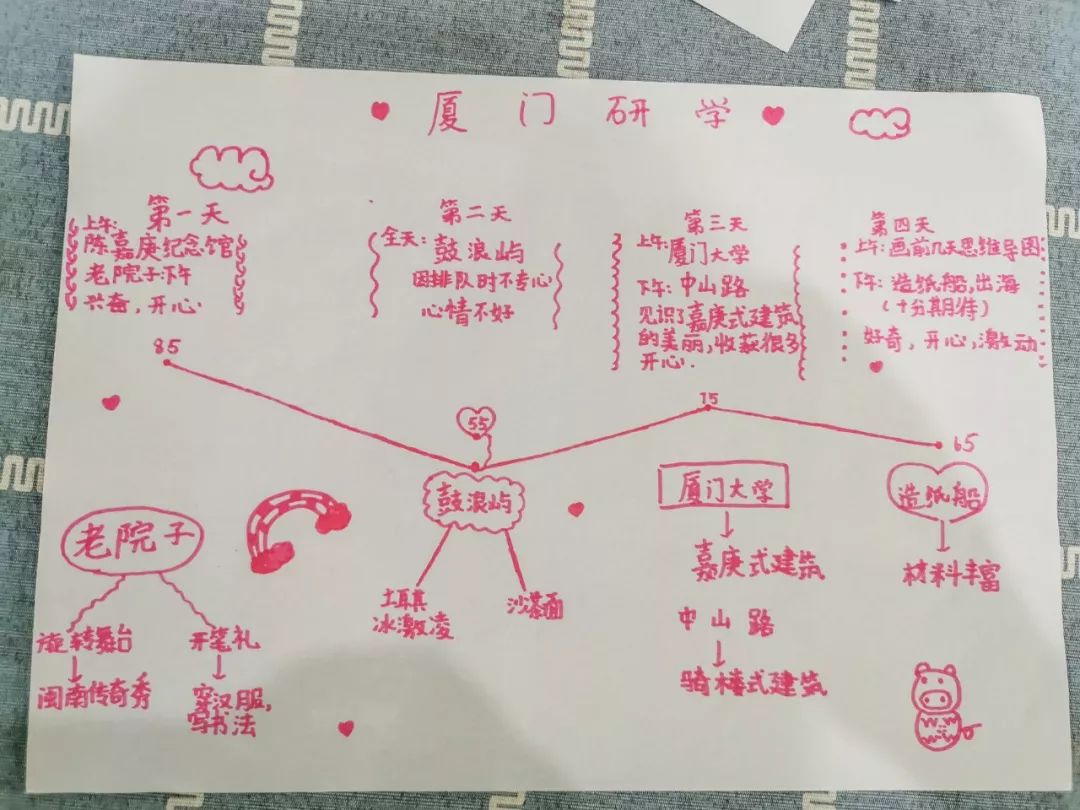 厦门研学
第一天
上午:
陈嘉庚纪念馆
老院子下午
兴奋,开心
第二天
全天:鼓浪屿
因排队时不专心
心情不好
第三天
上午:厦门大学
下午:中山路
见识了嘉庚式建筑
的美丽,收获很多
开心.
第四天
上午:画前几天思维导图
下午:造纸船,出海
(十分期待)
好奇,开心,激动
85
55
75
65
老院子
旋转舞台
闽南传奇秀
开笔礼
穿汉服,
写书法
鼓浪屿
土耳其
冰激凌
沙茶面
厦门大学
嘉庚式建筑
中山路
骑楼式建筑
造纸船
材料丰富